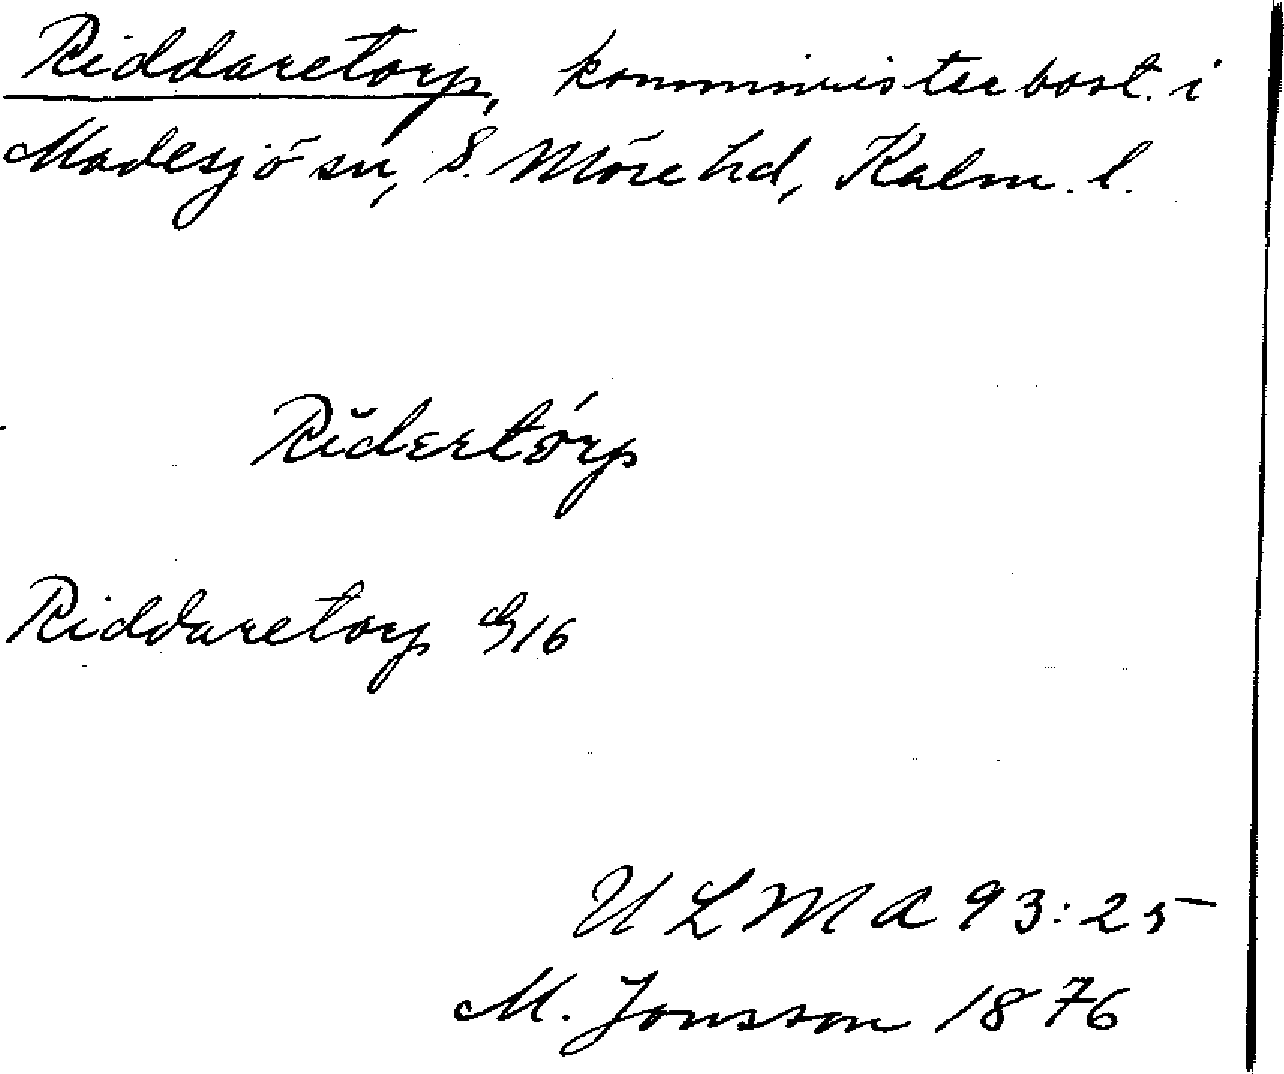 Riddaretorp, komministerbost. i
Madesjö sn, S. Möre hd, Kalm. l.
Rĭdertórp
Riddaretorp G16
ULMA 93:25
M. Jonsson 1876